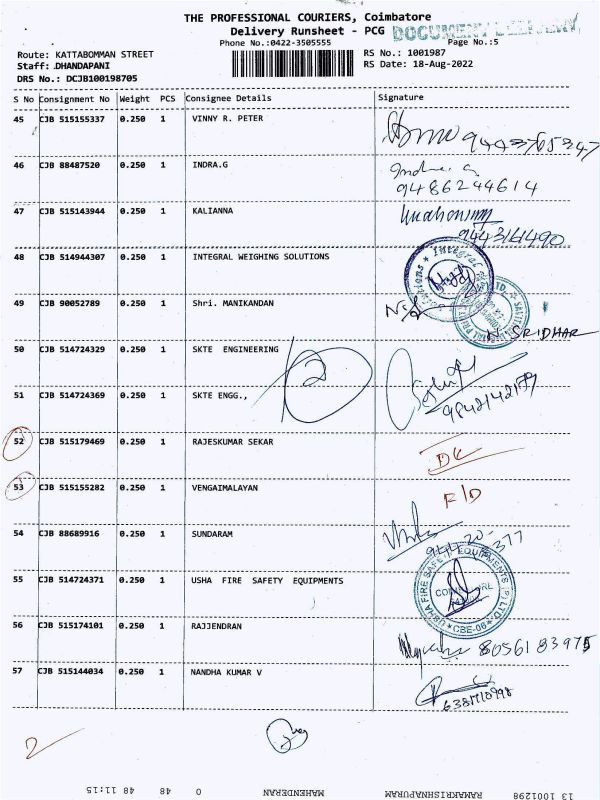 THE PROFESSIONAL COURIERS, Coimbatore
Delivery Runsheet - PCG
Phone No.:0422-3505555
Page No.:5
Route: KATTABOMMAN STREET
RS No.: 1001987
Staff: DHANDAPANI
RS Date: 18-Aug-2022
DRS No.: DCJB100198705
S No Consignment No Weight PCS Consignee Details Signature
45 CJB 515155337 0.250 1 VINNY R. PETER
9443765347
46 CJB 88487520 0.250 1 INDRA.G
9486244614
47 CJB 515143944 0.250 1 KALIANNA
48 CJB 514944307 0.250 1 INTEGRAL WEIGHING SOLUTIONS
49 CJB 90052789 0.250 1 Shri. MANIKANDAN
N. SRIDHAR
50 CJB 514724329 0.250 1 SKTE ENGINEERING
2
51 CJB 514724369 0.250 1 SKTE ENGG.,
52 CJB 515179469 0.250 1 RAJESKUMAR SEKAR
DL
53 CJB 515155282 0.250 1 VENGAIMALAYAN
F/D
54 CJB 88689916 0.250 1 SUNDARAM
55 CJB 514724371 0.250 1 USHA FIRE SAFETY EQUIPMENTS
USHA FIRE SAFETY EQUIPMENTS (P) LTD.
CBE-06
56 CJB 515174101 0.250 1 RAJJENDRAN
8056183975
57 CJB 515144034 0.250 1 NANDHA KUMAR V
2
13 1001298 RAMAKRISHNAPURAM MAHENDERAN 0 48 48 11:15